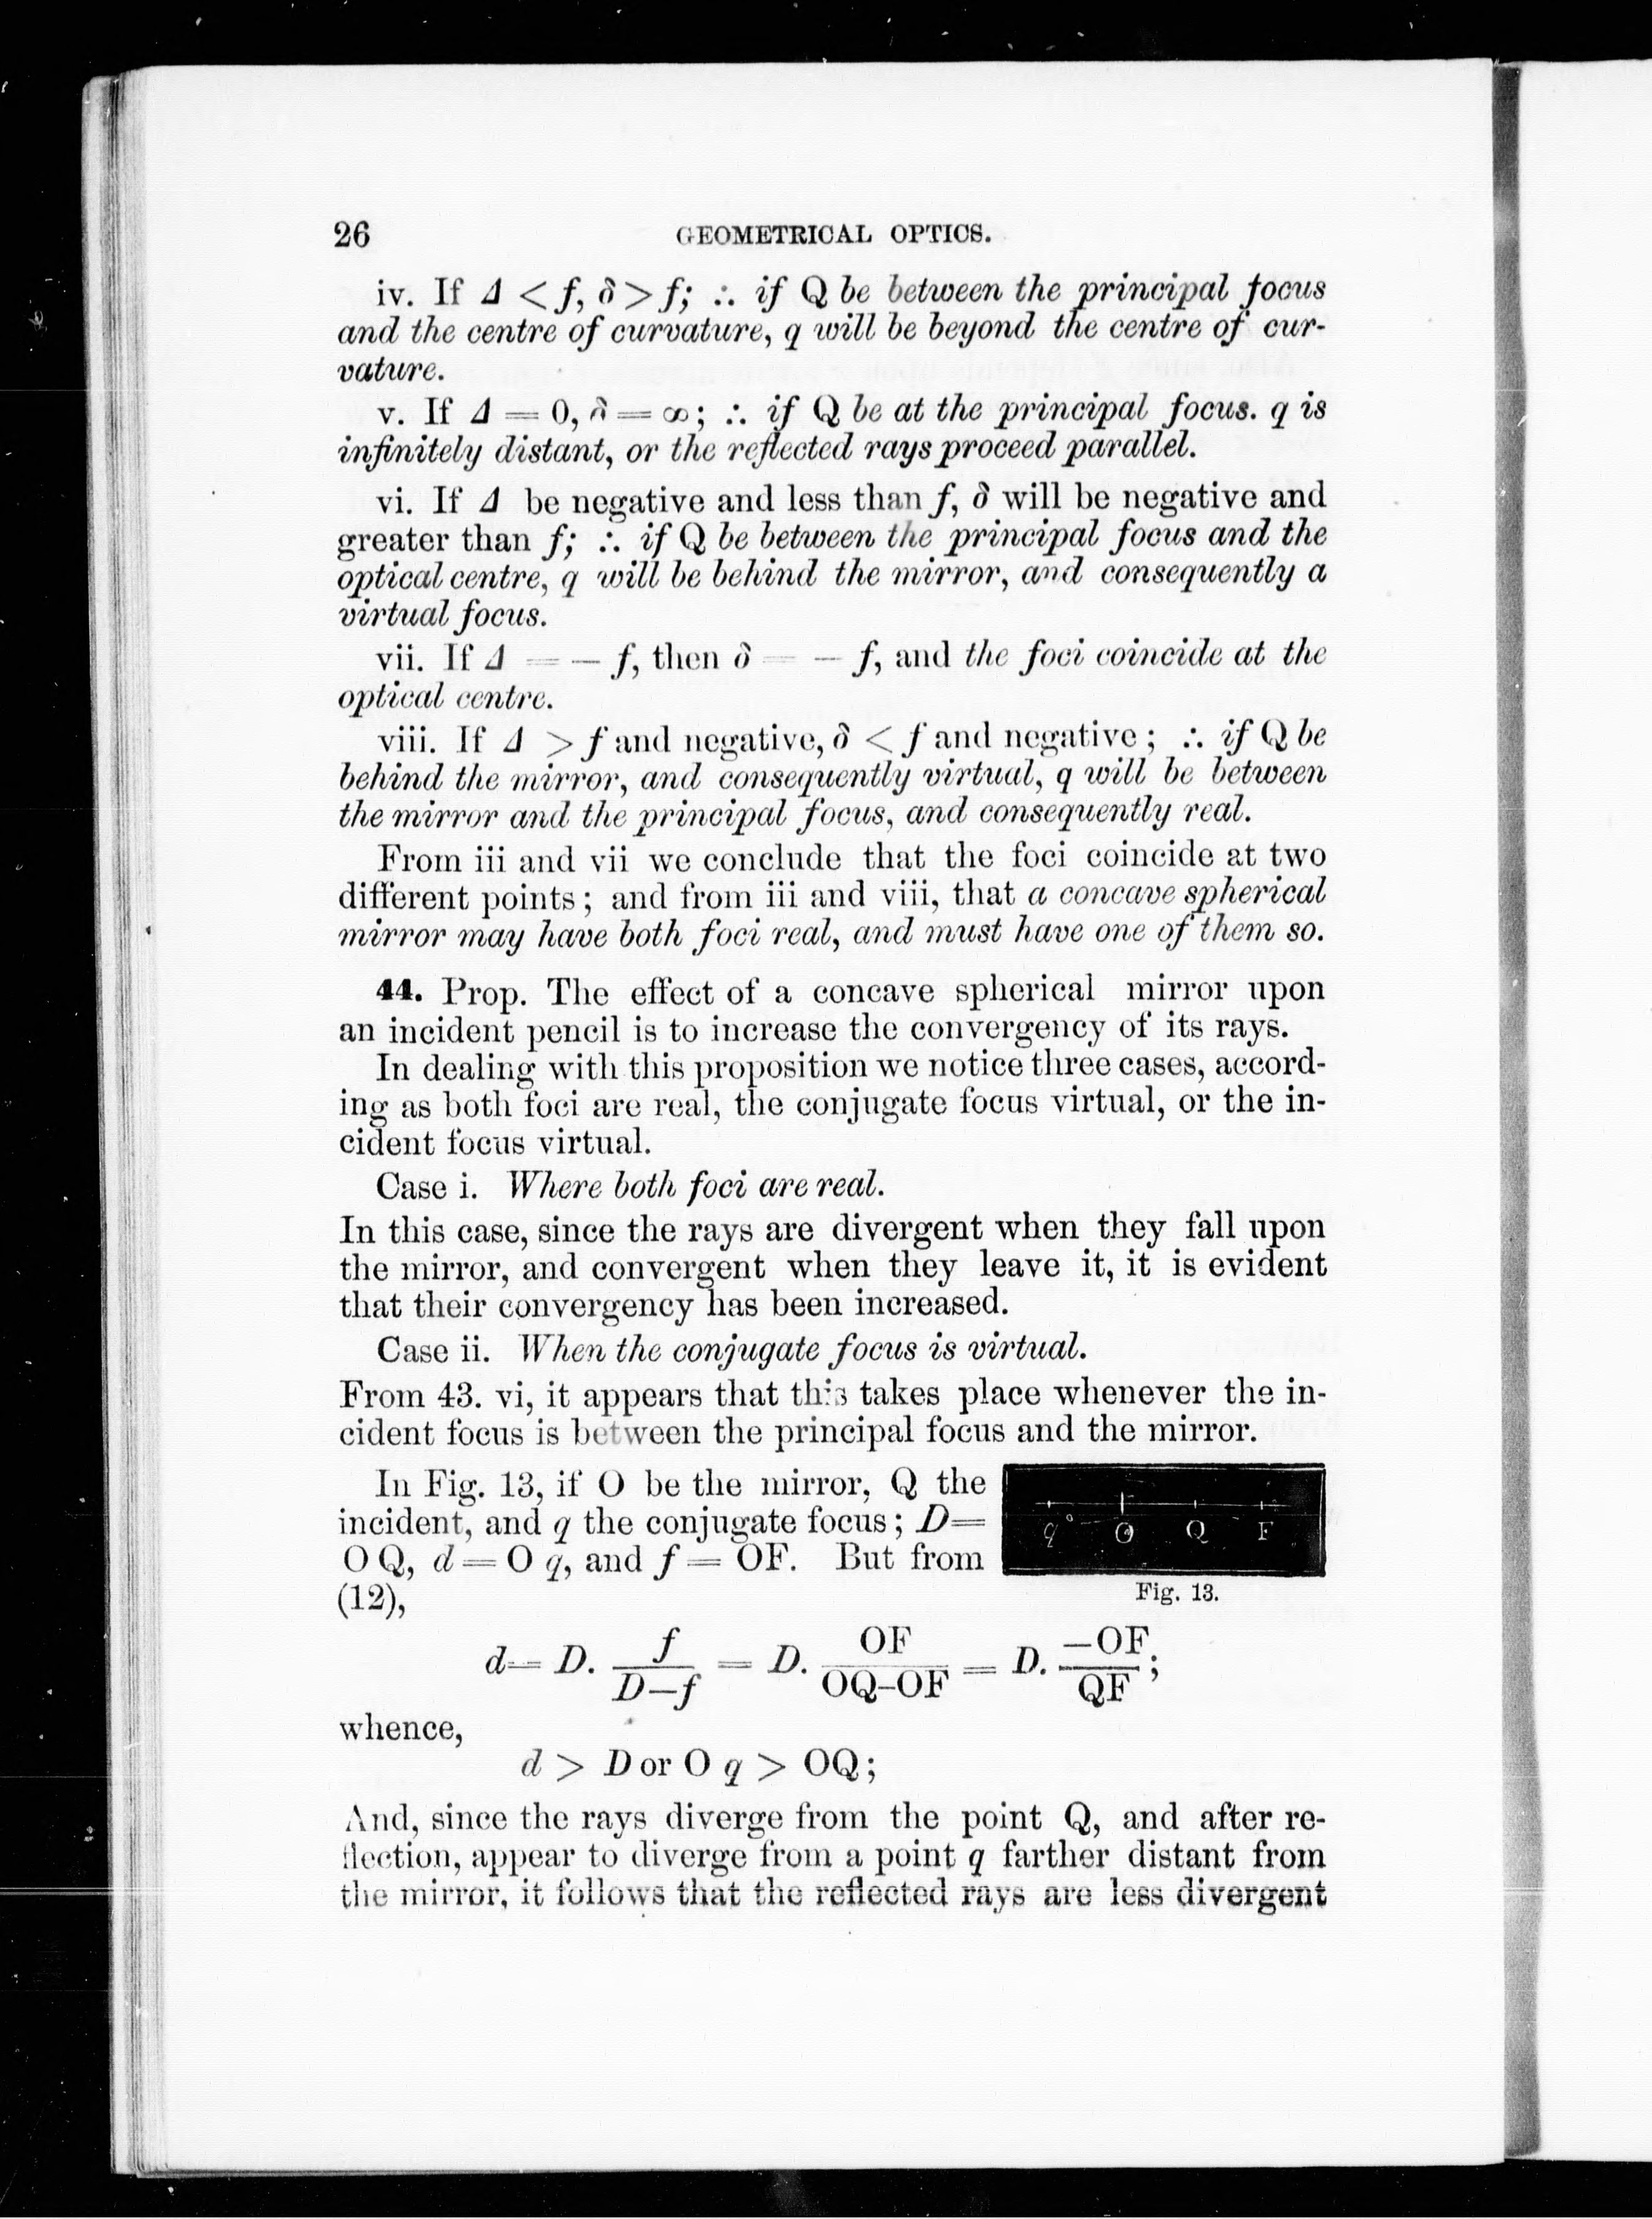 26 GEOMETRICAL OPTICS.
iv. If Δ < f, δ > f; ∴ if Q be between the principal focus
and the centre of curvature, q will be beyond the centre of cur-
vature.
v. If Δ = 0, δ = ∞; ∴ if Q be at the principal focus. q is
infinitely distant, or the reflected rays proceed parallel.
vi. If Δ be negative and less than f, δ will be negative and
greater than f; ∴ if Q be between the principal focus and the
optical centre, q will be behind the mirror, and consequently a
virtual focus.
vii. If Δ = — f, then δ = — f, and the foci coincide at the
optical centre.
viii. If Δ > f and negative, δ < f and negative; ∴ if Q be
behind the mirror, and consequently virtual, q will be between
the mirror and the principal focus, and consequently real.
From iii and vii we conclude that the foci coincide at two
different points; and from iii and viii, that a concave spherical
mirror may have both foci real, and must have one of them so.
44. Prop. The effect of a concave spherical mirror upon
an incident pencil is to increase the convergency of its rays.
In dealing with this proposition we notice three cases, accord-
ing as both foci are real, the conjugate focus virtual, or the in-
cident focus virtual.
Case i. Where both foci are real.
In this case, since the rays are divergent when they fall upon
the mirror, and convergent when they leave it, it is evident
that their convergency has been increased.
Case ii. When the conjugate focus is virtual.
From 43. vi, it appears that this takes place whenever the in-
cident focus is between the principal focus and the mirror.
In Fig. 13, if O be the mirror, Q the
incident, and q the conjugate focus; D=
O Q, d = O q, and f = OF. But from
(12),
q O Q F
Fig. 13.
d = D. f/(D—f) = D. OF/(OQ–OF) = D. —OF/QF;
whence,
d > D or O q > OQ;
And, since the rays diverge from the point Q, and after re-
flection, appear to diverge from a point q farther distant from
the mirror, it follows that the reflected rays are less divergent